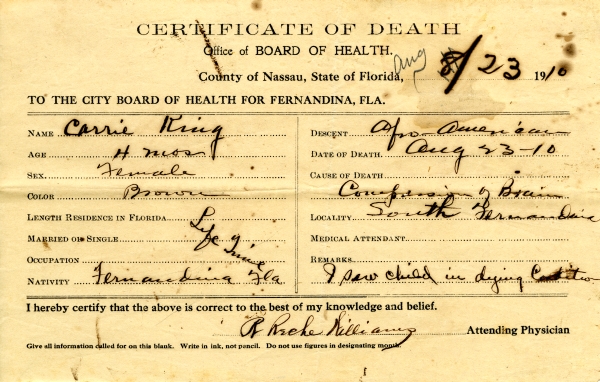 CERTIFICATE OF DEATH
Office of BOARD OF HEALTH.
County of Nassau, State of Florida, Aug 8/23 1910
TO THE CITY BOARD OF HEALTH FOR FERNANDINA, FLA.
NAME Carrie King
AGE 4 mos
SEX. Female
COLOR Brown
LENGTH RESIDENCE IN FLORIDA Life
MARRIED OR SINGLE
OCCUPATION
NATIVITY Fernandina Fla
DESCENT. Afro American
DATE OF DEATH. Aug 23-10
CAUSE OF DEATH
Compression of Brain
LOCALITY South Fernandina
MEDICAL ATTENDANT.
REMARKS.
I saw child in dying Condition
I hereby certify that the above is correct to the best of my knowledge and belief.
Williams Attending Physician
Give all information called for on this blank. Write in ink, not pencil. Do not use figures in designating month.